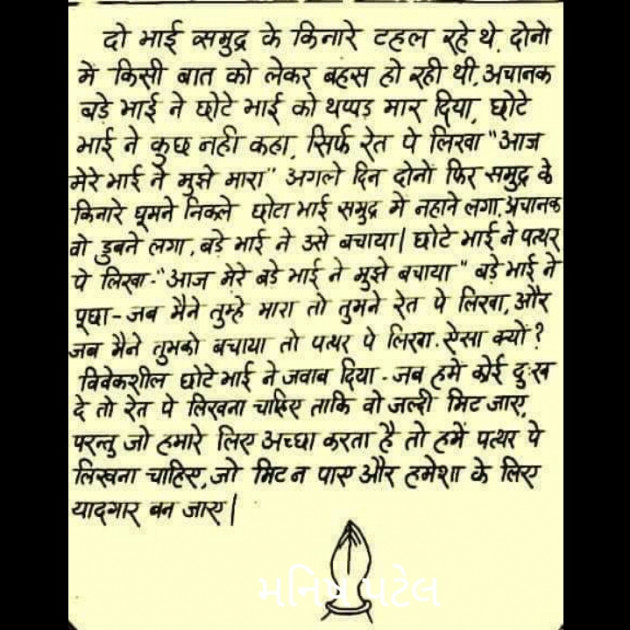 दो भाई समुद्र के किनारे टहल रहे थे. दोनो
में किसी बात को लेकर बहस हो रही थी. अचानक
बडे भाई ने छोटे भाई को थप्पड मार दिया, छोटे
भाई ने कुछ नही कहा, सिर्फ रेत पे लिखा "आज
मेरे भाई ने मुझे मारा" अगले दिन दोनों फिर समुद्र के
किनारे घूमने निकले छोटा भाई समुद्र मे नहाने लगा. अचानक
वो डुबने लगा, बडे भाई ने उसे बचाया। छोटे भाई ने पत्थर
पे लिखा-"आज मेरे बडे भाई ने मुझे बचाया" बडे भाई ने
पूछा-जब मैने तुम्हे मारा तो तुमने रेत पे लिखा, और
जब मैने तुमको बचाया तो पत्थर पे लिखा. ऐसा क्यों?
विवेकशील छोटे भाई ने जवाब दिया-जब हमे कोई दुःख
दे तो रेत पे लिखना चाहिए ताकि वो जल्दी मिट जाए,
परन्तु जो हमारे लिए अच्छा करता है तो हमें पत्थर पे
लिखना चाहिए, जो मिट न पाए और हमेशा के लिए
यादगार बन जाए।
મનિષ પટેલ